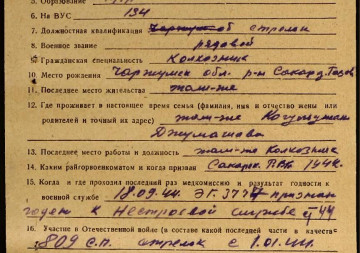 5. Образование
6. На ВУС 134
7. Должностная квалификация стрелок
8. Военное звание рядовой
9. Гражданская специальность Колхозник
10. Место рождения обл. р-н
11. Последнее место жительства там-же
12. Где проживает в настоящее время семья (фамилия, имя и отчество жены или
родителей и точный их адрес) там-же
Джумашова
13. Последнее место работы и должность там-же Колхозник
14. Каким райгорвоенкоматом и когда призван
15. Когда и где проходил последний раз медкомиссию и результат годности к
военной службе 18.09.44. ЭГ признан
годен к нестроевой службе
16. Участие в Отечественной войне (в составе какой последней части, в качестве
809 с.п. стрелок с 1.01.44.